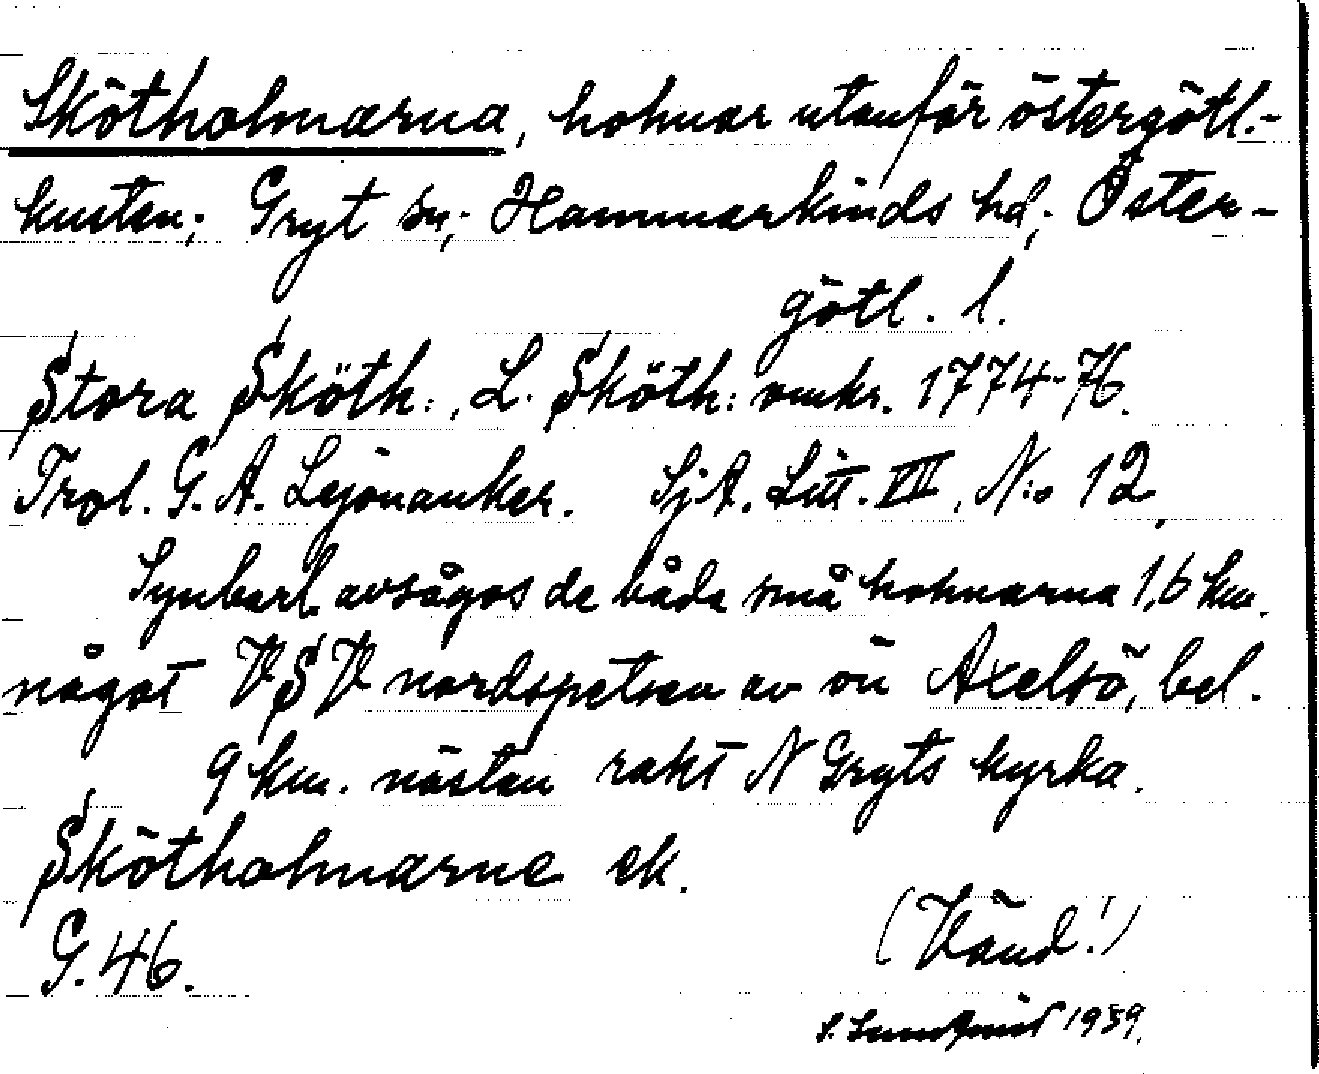 Skötholmarna, holmar utanför östergötl.-
kusten; Gryt sn; Hammarkinds hd; Öster-
götl. l.
Stora Sköth:, L. Sköth: omkr. 1774-76.
Trol. G. A. Lejonanker. Sj.A. Litt. VII, N:o 12,
Synbarl. avsågos de båda små holmarna 1,6 km.
något VSV nordspetsen av ön Axelsö, bel.
9 km. nästan rakt N Gryts kyrka.
Skötholmarne ek.
G. 46.
(Vänd!)
S. Lundqvist 1939.